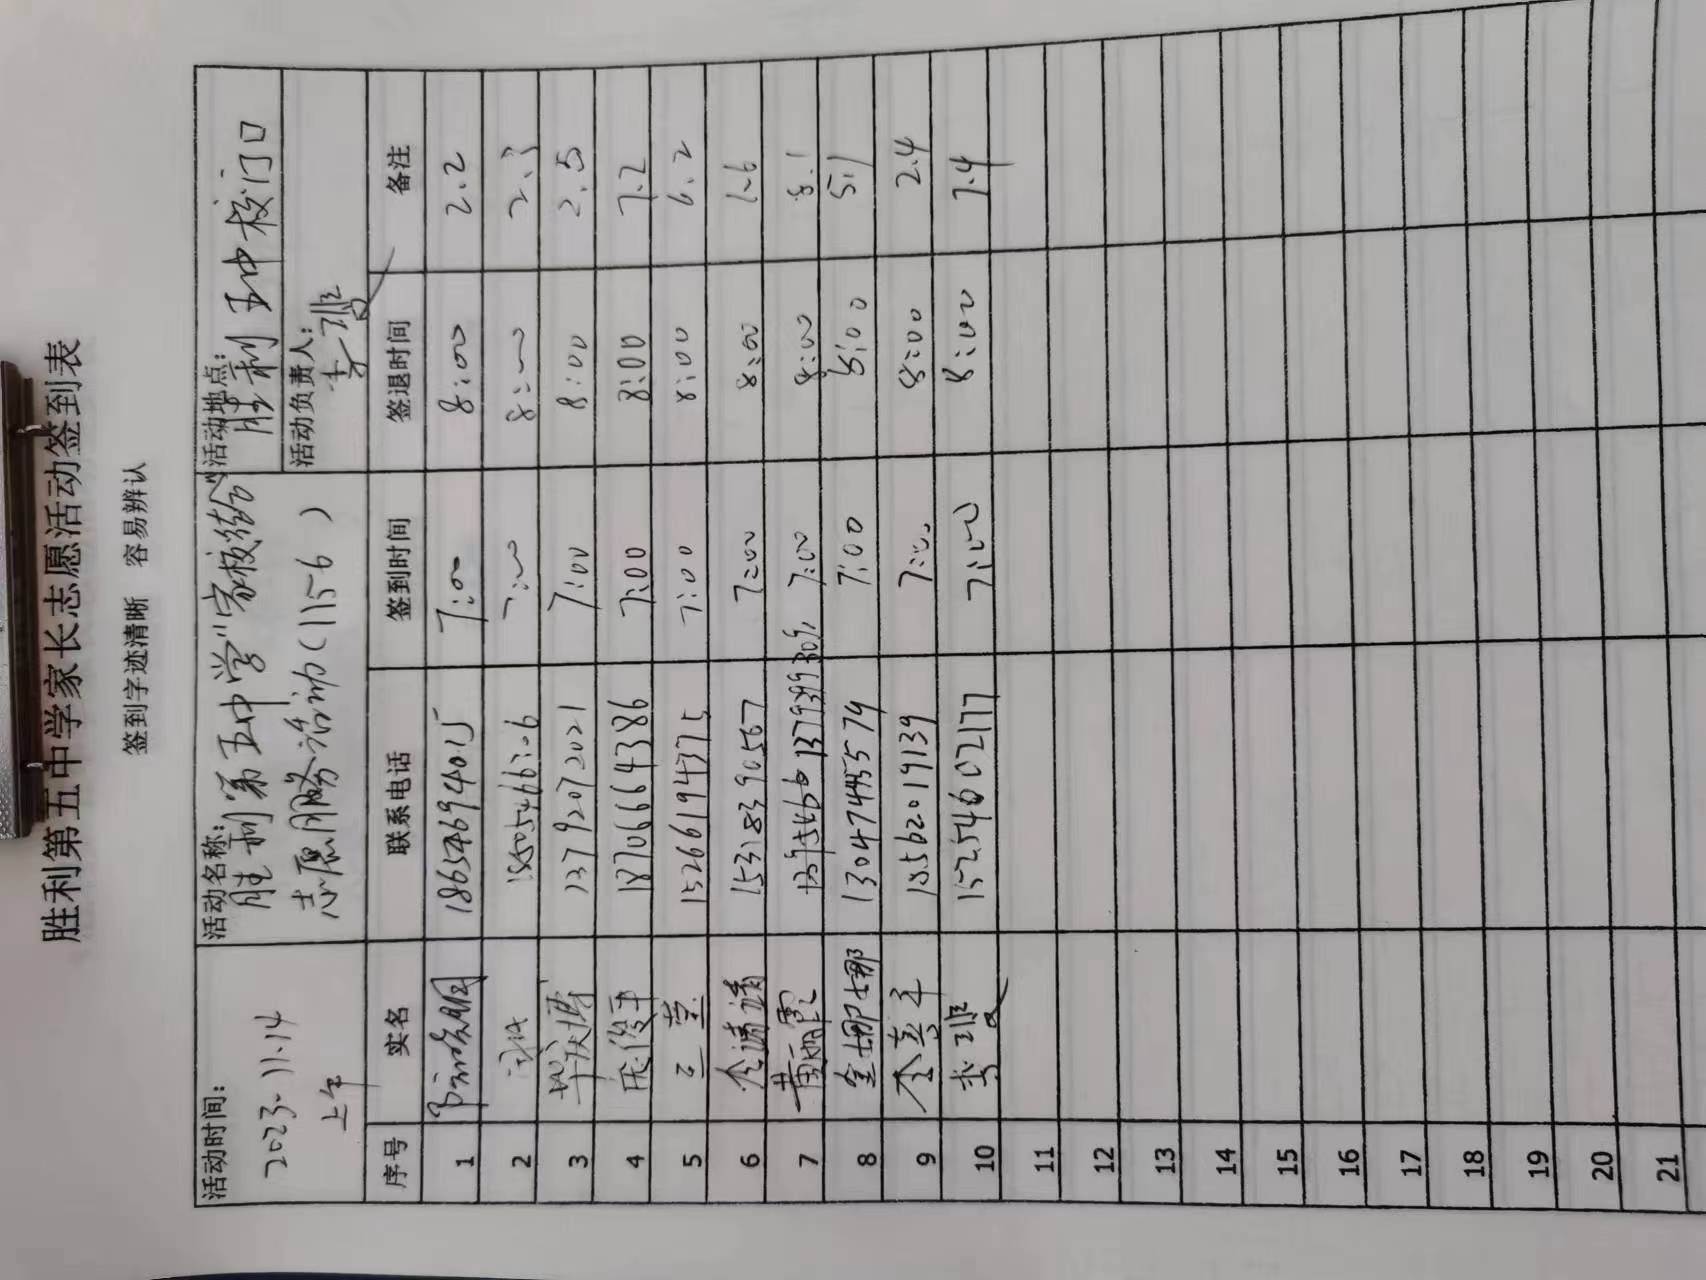 胜利第五中学家长志愿活动签到表
签到字迹清晰 容易辨认
活动时间: 活动名称: 活动地点:
2023.11.14 胜利第五中学"家校结合" 胜利五中校门口
上午 志愿服务活动(1156) 活动负责人:
李琨
序号 实名 联系电话 签到时间 签退时间 备注
1 18654694015 7:00 8:00 2.2
2 7:00 8:00 2.3
3 13792072021 7:00 8:00 2.5
4 18706664386 7:00 8:00 7.2
5 15266194375 7:00 8:00 6.2
6 15318390567 7:00 8:00 1.6
7 黄丽霞 7:00 8:00 8.1
8 金娜娜 13047495574 7:00 8:00 5.1
9 18562019139 7:00 8:00 2.4
10 李琨 15254602177 7:00 8:00 7.4
11
12
13
14
15
16
17
18
19
20
21